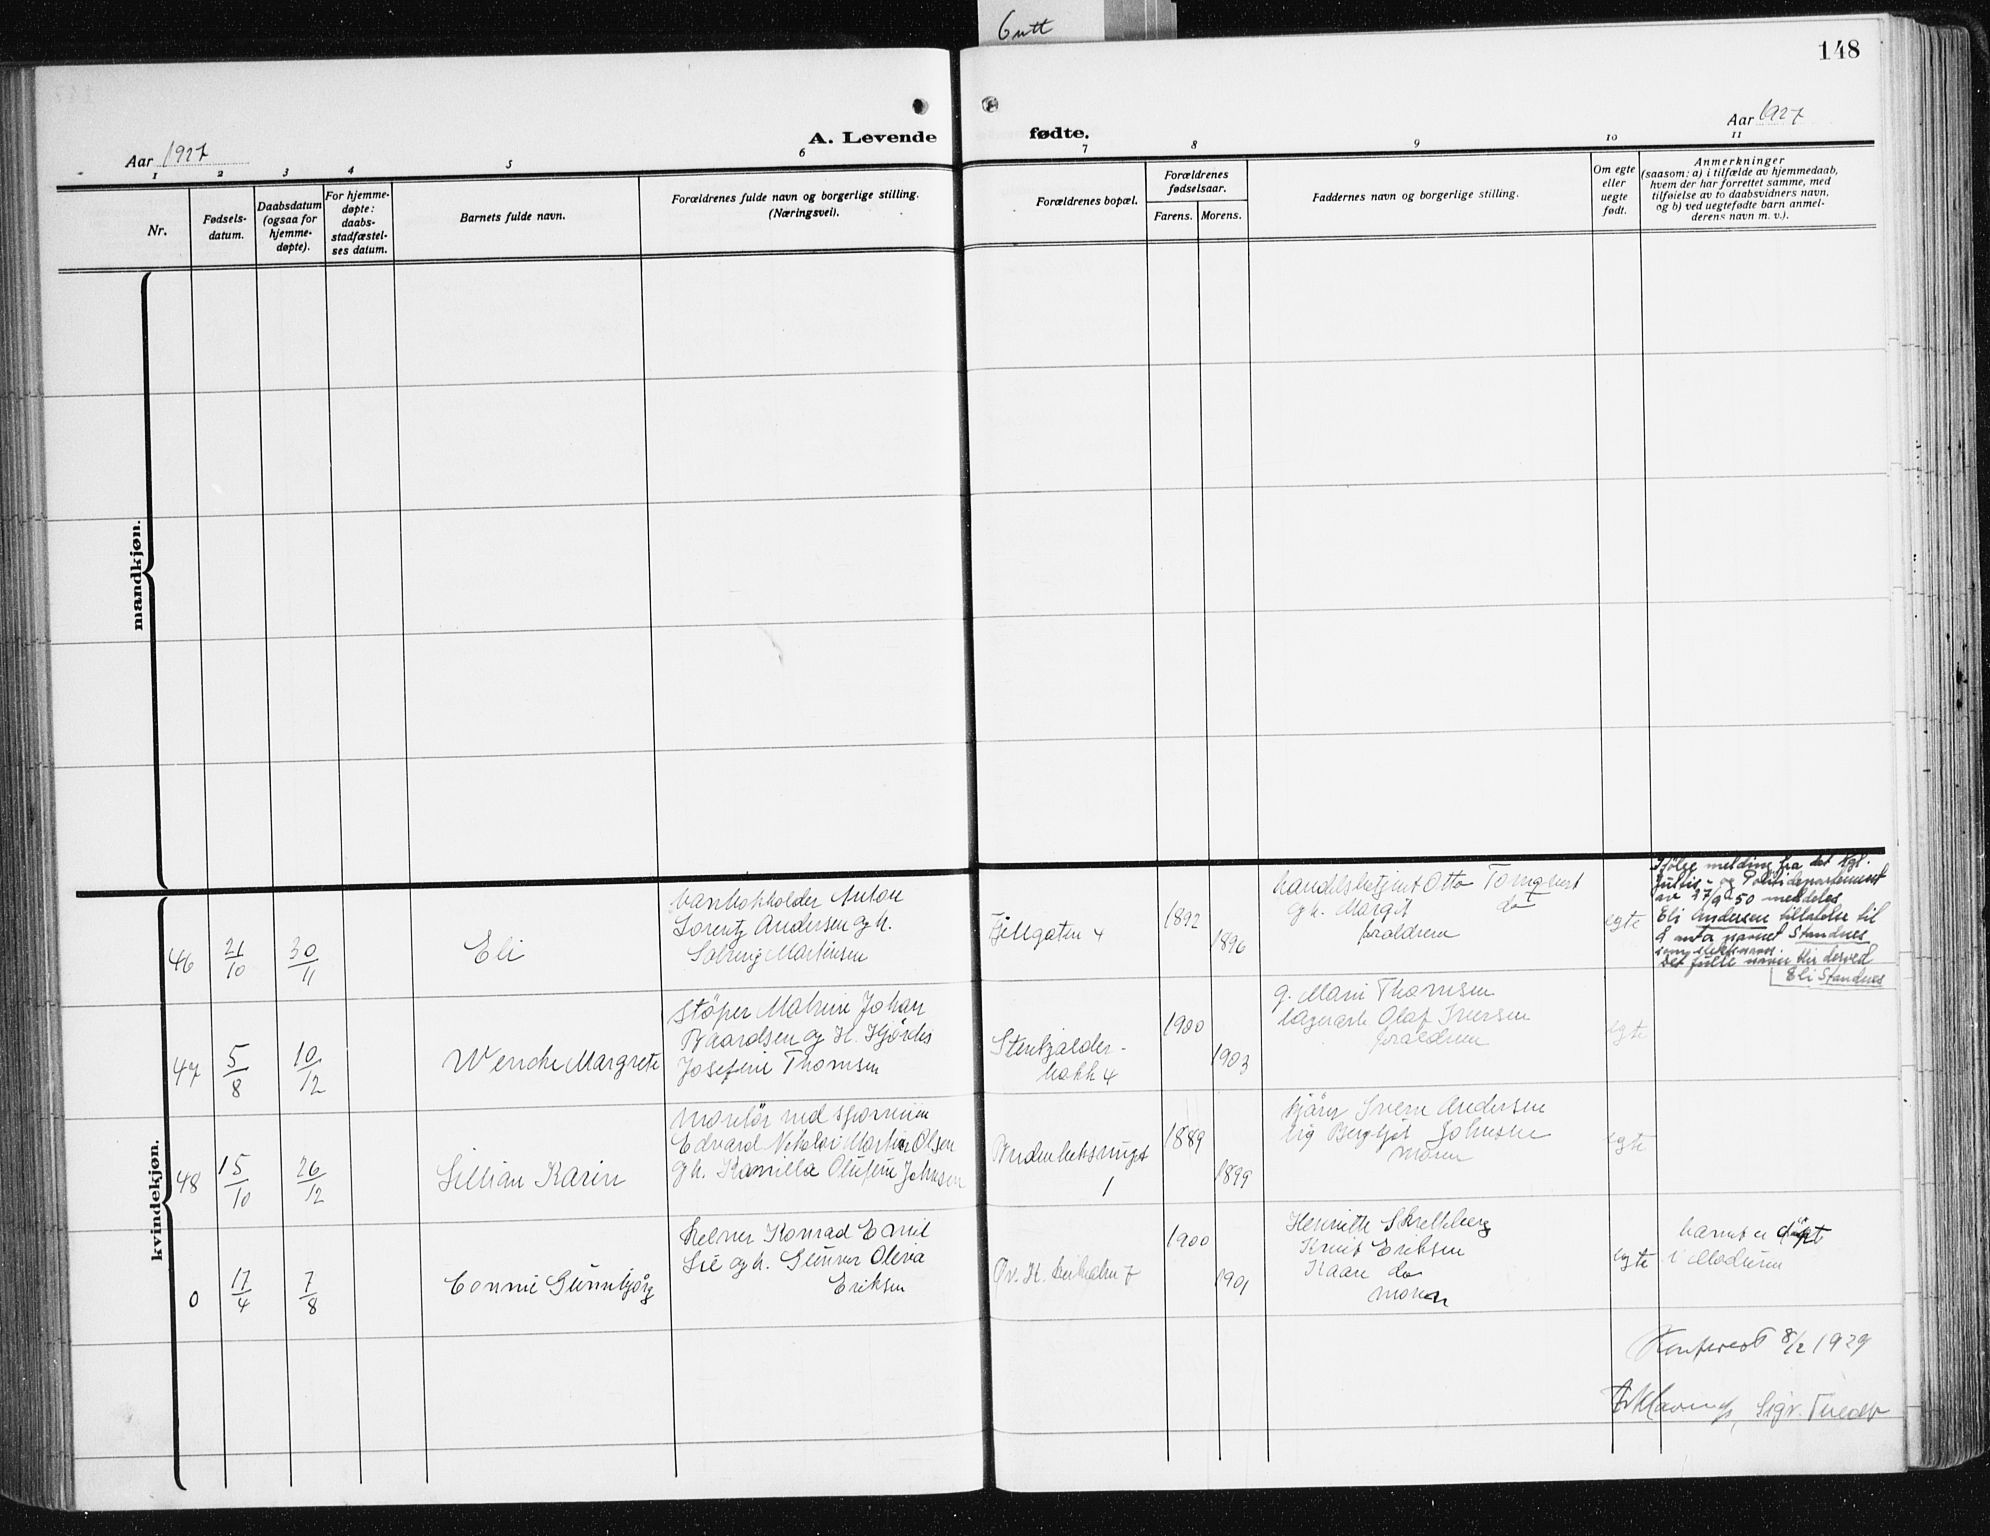 Gutt
148
A. Levende fødte.
Aar 1927
Aar 1927
1 2 3 4 5 6 7 8 9 10 11
Nr.
Fødselsdatum.
Daabsdatum (ogsaa for hjemmedøpte).
For hjemmedøpte: daabsstadfæstelses datum.
Barnets fulde navn.
Forældrenes fulde navn og borgerlige stilling. (Næringsvei).
Forældrenes bopæl.
Forældrenes fødselsaar.
Farens.
Morens.
Faddernes navn og borgerlige stilling.
Om egte eller uegte født.
Anmerkninger
(saasom: a) i tilfælde av hjemmedaab,
hvem der har forrettet samme, med
tilføielse av to daabsvidners navn,
og b) ved uegtefødte barn anmelderens navn m. v.).
mandkjøn.
kvindekjøn.
46
21/10
30/11
Eli
Anton
Lorentz Andersen og h.
Solveig Martinsen
Fjellgaten 4
1892
1896
Otto
og h. Margit do
foraldrene
egte
Ifølge melding fra det kgl.
Justis- og Politidepartement
av 27/9 50 meddeles
Eli Andersen tillatelse til
å anta navnet Standnes
som slektsnavn.
Det fulle navn blir derved
Eli Standnes
47
5/8
10/12
Wenche Margrete
Støper Johan
Baardsen og H. Hjørdis
Josefine Thomsen
Stenkjelder-
bakk 4
1900
1903
Marie Thomsen
Olaf Iversen
foraldrene
egte
48
15/10
26/12
Lillian Karin
Edvard Nikolai Martin Olsen
og h. Kamilla Olufine Johnsen
1
1889
1899
Svein Andersen
Bergljot Johnsen
moren
egte
0
17/4
7/8
Connie Gunnbjørg
Kelner Konrad Emil
Lie og h. Gunvor Olivia
Eriksen
7
1900
1901
Knut Eriksen
Kaare do
moren
egte
barnet er døpt
i Modum
Konferert 8/2 1929